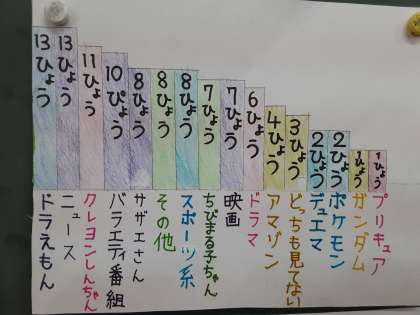 13ひょう
13ひょう
11ひょう
10ぴょう
8ひょう
8ひょう
8ひょう
7ひょう
7ひょう
6ひょう
4ひょう
3ひょう
2ひょう
2ひょう
1ひょう
1ひょう
ドラえもん
ニュース
クレヨンしんちゃん
バラエティ番組
サザエさん
その他
スポーツ系
ちびまる子ちゃん
映画
ドラマ
アマゾン
どっちも見てない
デュエマ
ポケモン
ガンダム
プリキュア